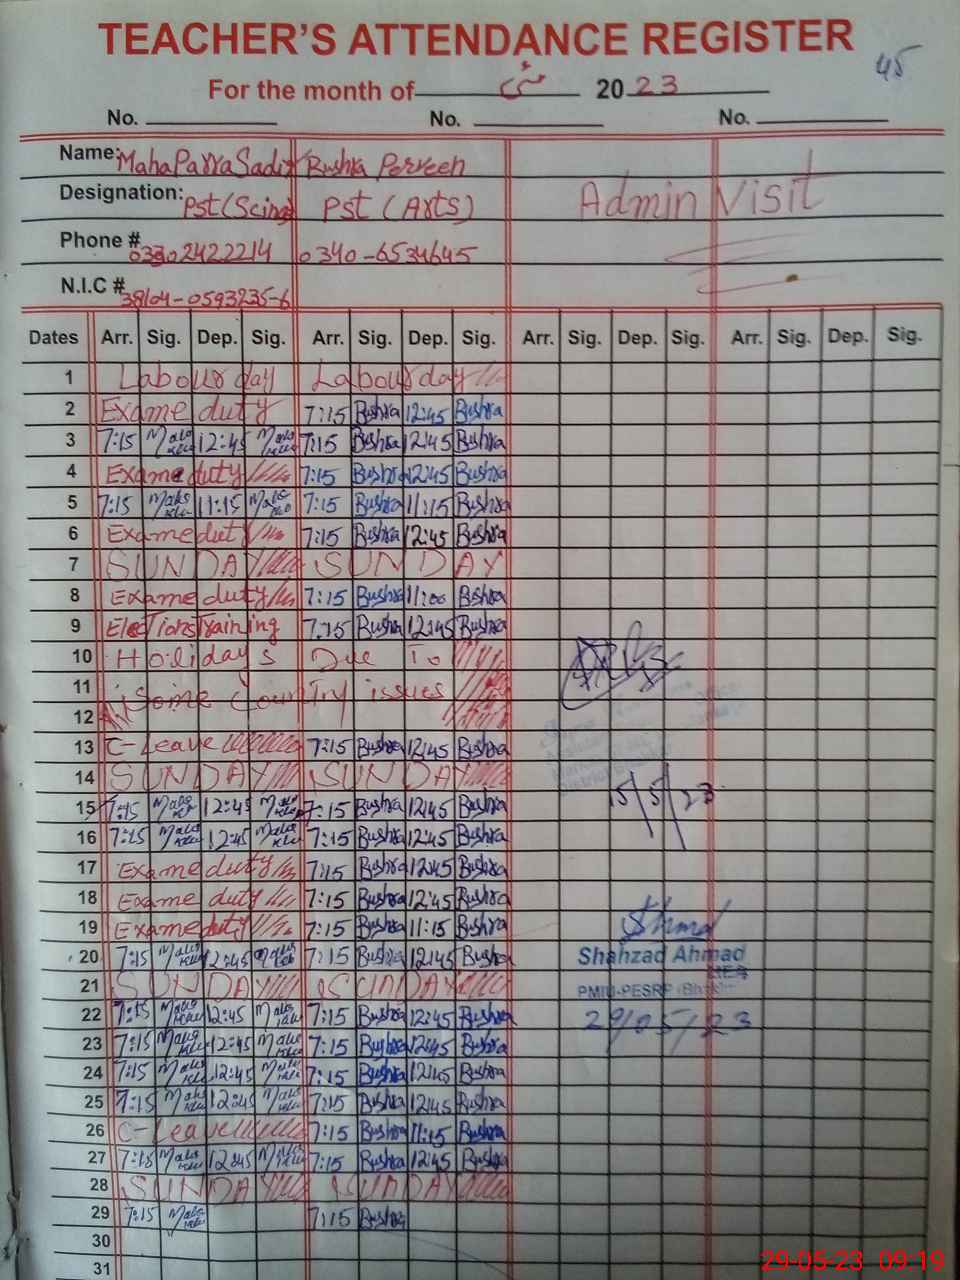 TEACHER'S ATTENDANCE REGISTER
45
For the month of مئی 2023
No. No. No.
Name: Maha Parra Sadi Bushra Perveen
Designation: Pst (Scine) Pst (Arts) Admin Visit
Phone # 03302422214 0340-6534645
N.I.C # 38104-0593235-6
Dates Arr. Sig. Dep. Sig. Arr. Sig. Dep. Sig. Arr. Sig. Dep. Sig. Arr. Sig. Dep. Sig.
1 Labour day Labour day
2 Exame duty 7:15 Bushra 12:45 Bushra
3 7:15 12:45 7:15 Bushra 12:45 Bushra
4 Exame duty 7:15 Bushra 12:45 Bushra
5 7:15 11:15 7:15 Bushra 11:15 Bushra
6 Exame duty 7:15 Bushra 12:45 Bushra
7 SUNDAY SUNDAY
8 Exame duty 7:15 Bushra 11:00 Bushra
9 Elections Training 7:15 Bushra 12:45 Bushra
10 Holidays Due To
11 Some Country issues
12
13 C-Leave 7:15 Bushra 12:45 Bushra
14 SUNDAY SUNDAY
15 7:15 12:45 7:15 Bushra 12:45 Bushra 15/5/23
16 7:15 12:45 7:15 Bushra 12:45 Bushra
17 Exame duty 7:15 Bushra 12:45 Bushra
18 Exame duty 7:15 Bushra 12:45 Bushra
19 Exame duty 7:15 Bushra 11:15 Bushra
20 7:15 12:45 7:15 Bushra 12:45 Bushra Shahzad Ahmad
21 SUNDAY SUNDAY PMIU-PESRP
22 7:15 12:45 7:15 Bushra 12:45 Bushra 29/05/23
23 7:15 12:45 7:15 Bushra 12:45 Bushra
24 7:15 12:45 7:15 Bushra 12:45 Bushra
25 7:15 12:45 7:15 Bushra 12:45 Bushra
26 C-Leave 7:15 Bushra 11:15 Bushra
27 7:15 12:45 7:15 Bushra 12:45 Bushra
28 SUNDAY SUNDAY
29 7:15 7:15 Bushra
30
31
29-05-23 09:19